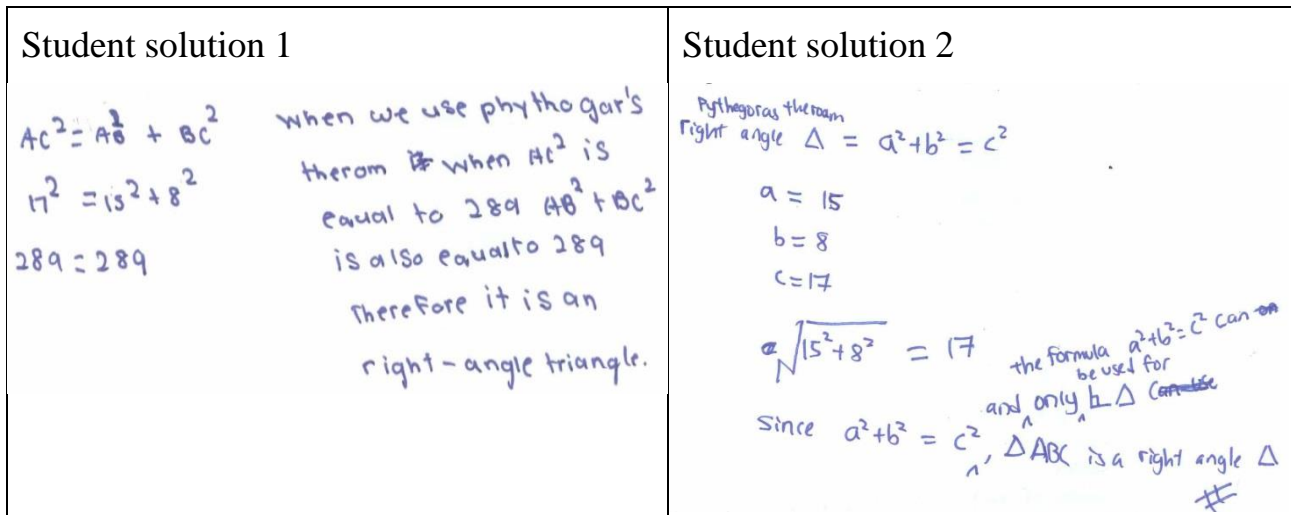 Student solution 1
AC² = AB² + BC²
17² = 15² + 8²
289 = 289
when we use phythogar's
therom when AC² is
equal to 289 AB² + BC²
is also equal to 289
Therefore it is an
right-angle triangle.
Student solution 2
Pythegoras theroam
right angle Δ = a²+b² = c²
a = 15
b = 8
c = 17
√15²+8² = 17
the formula a²+b²=c² can
be used for
and only ⊾ Δ
Since a²+b² = c², ΔABC is a right angle Δ
#